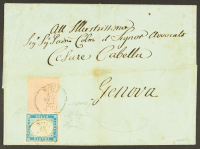 All' Illustrissimo
Sig. Sig. Padron Col.mo il Signor Avvocato
Cesare Cabella
Genova